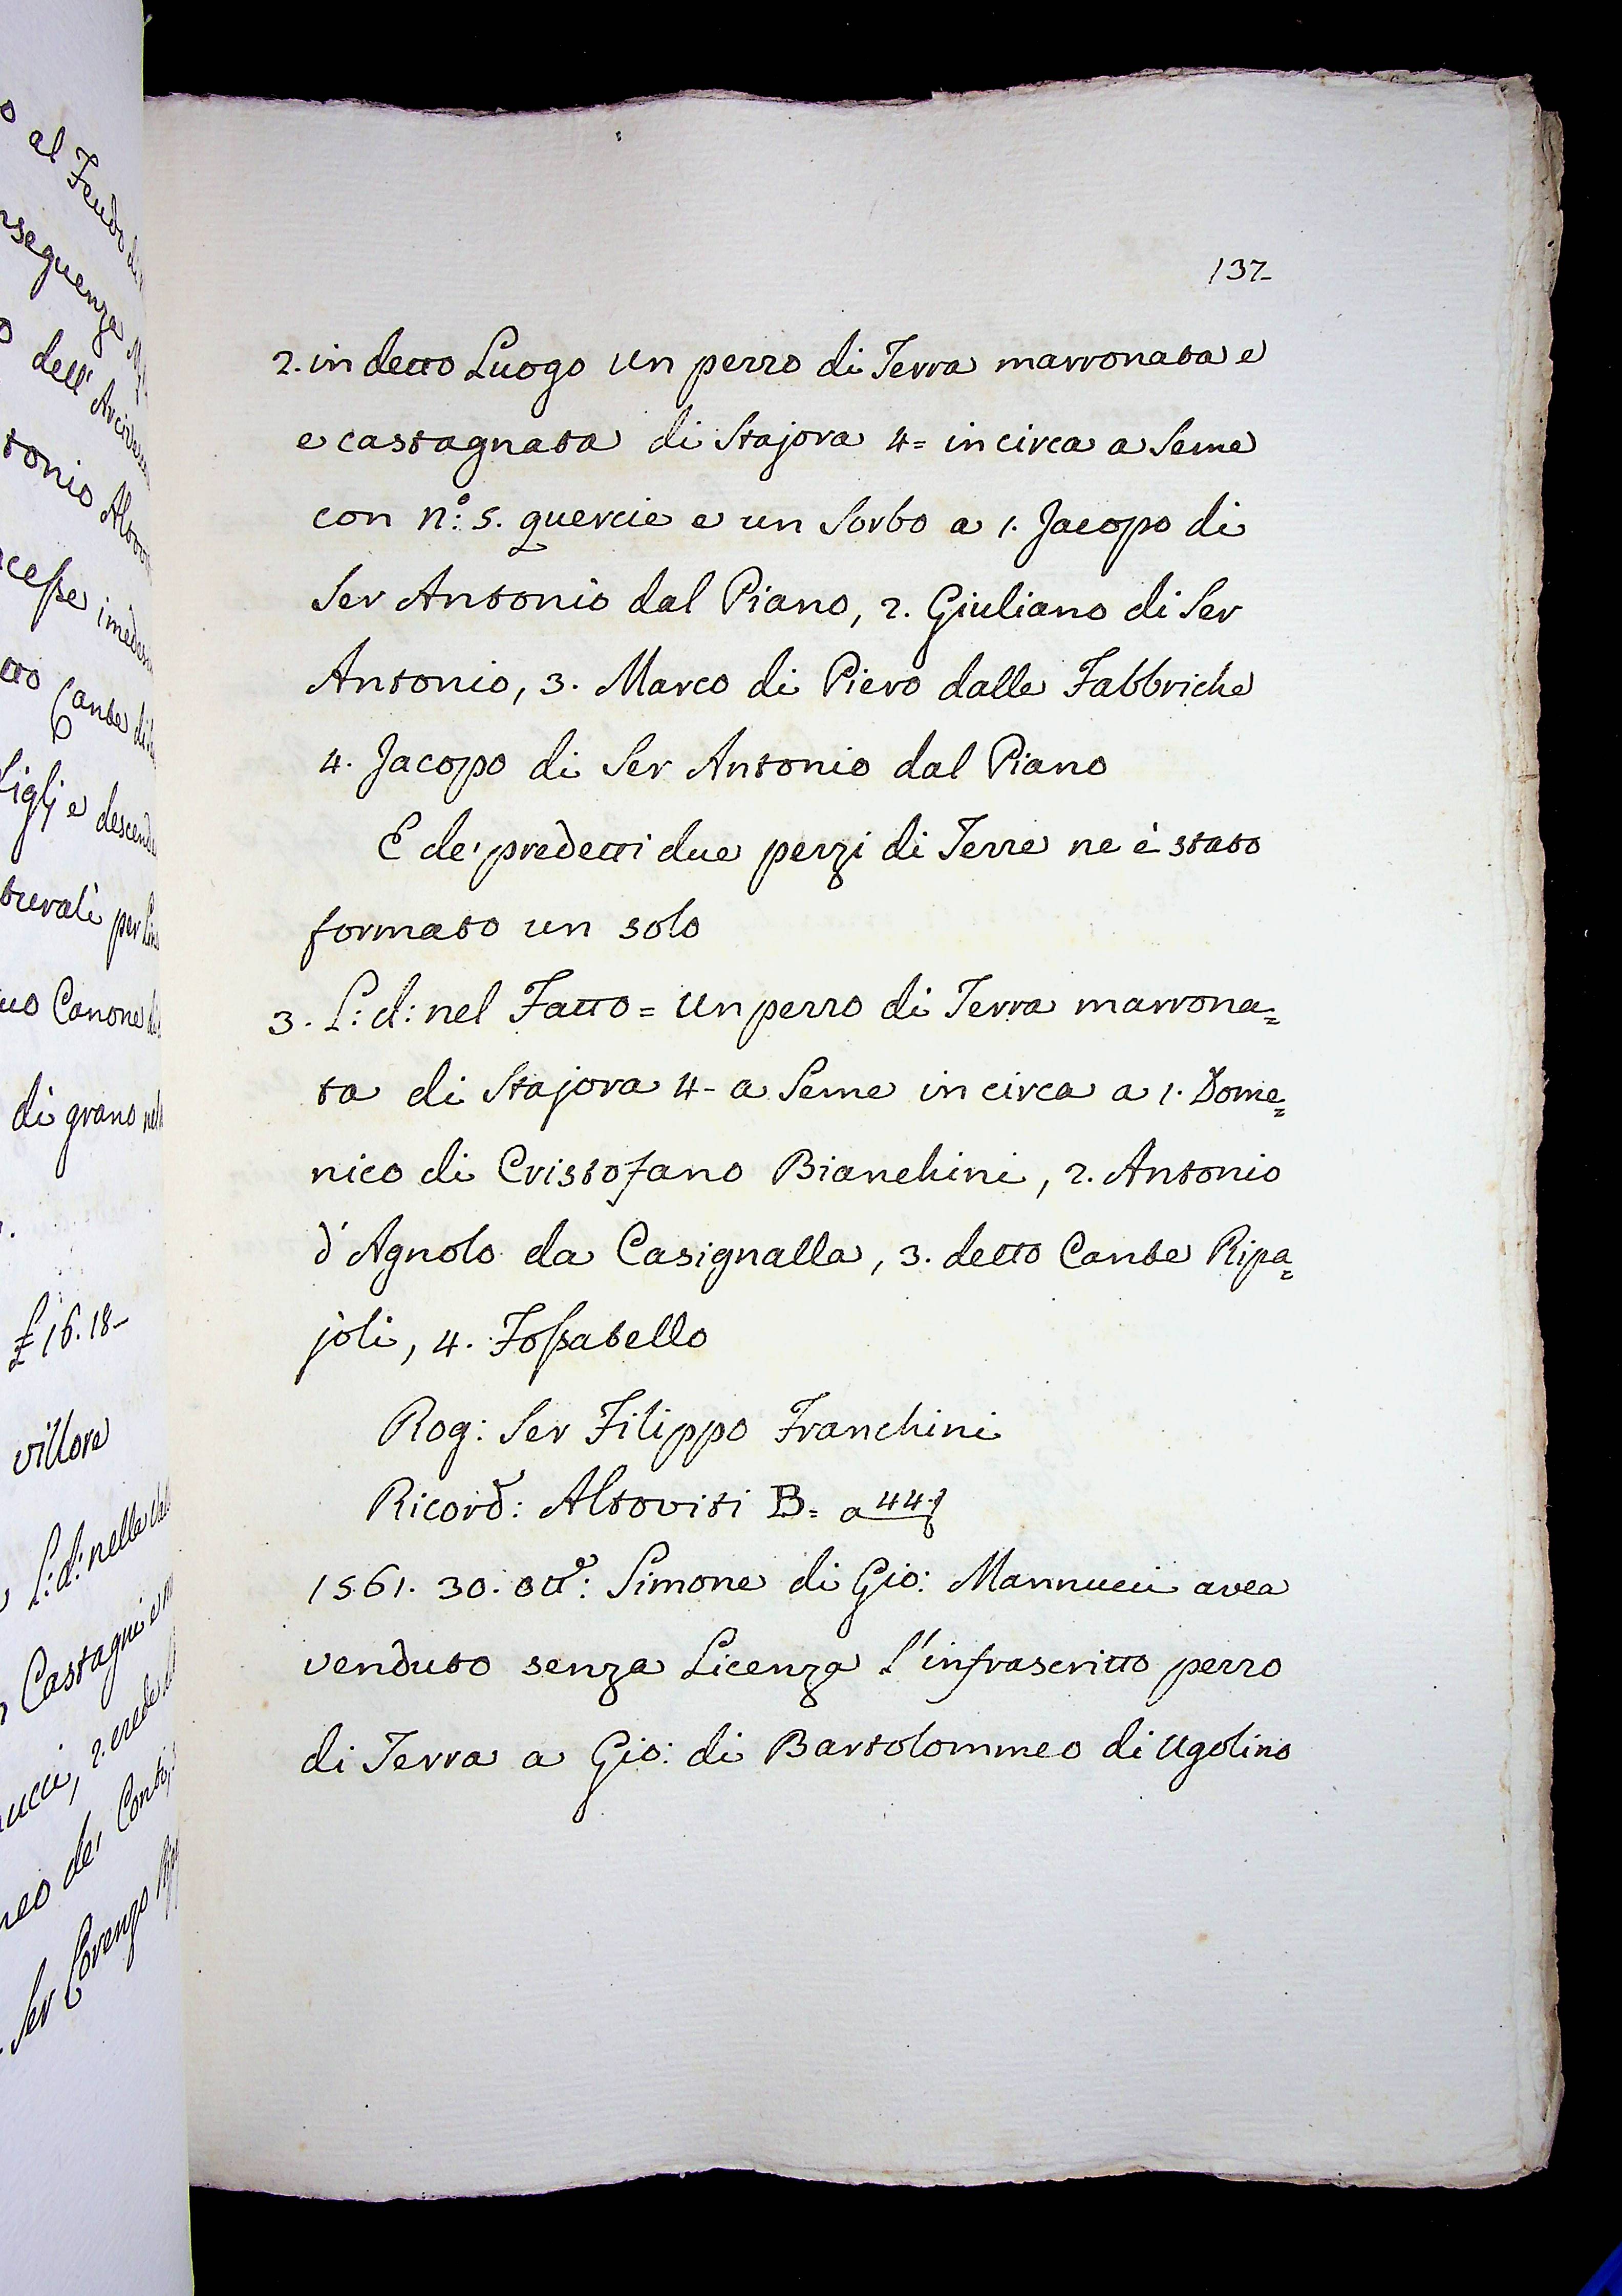 137
2. in detto Luogo un pezzo di Terra marronata e
e castagnata di Stajora 4= in circa a Seme
con n.º 5. quercie e un Sorbo a 1. Jacopo di
Ser Antonio dal Piano, 2. Giuliano di Ser
Antonio, 3. Marco di Piero dalle Fabbriche
4. Jacopo di Ser Antonio dal Piano
E de' predetti due pezzi di Terre ne è stato
formato un solo
3. L: d: nel Fatto = Un pezzo di Terra marrona=
ta di Stajora 4- a Seme in circa a 1. Dome=
nico di Cristofano Bianchini, 2. Antonio
d'Agnolo da Casignalla, 3. detto Cante Ripa=
joli, 4. Fossatello
Rog: Ser Filippo Franchini
Ricord: Altoviti B= a 44
1561. 30. Ott.e: Simone di Gio: Mannucci avea
venduto senza Licenza l'infrascritto pezzo
di Terra a Gio: di Bartolommeo di Ugolino
al Feudo
dell'
Cante
Figlj e
per
Canone
di grano
£ 16. 18-
L: d: nella
Castagni e
2. erede
de' Conti
Ser Lorenzo